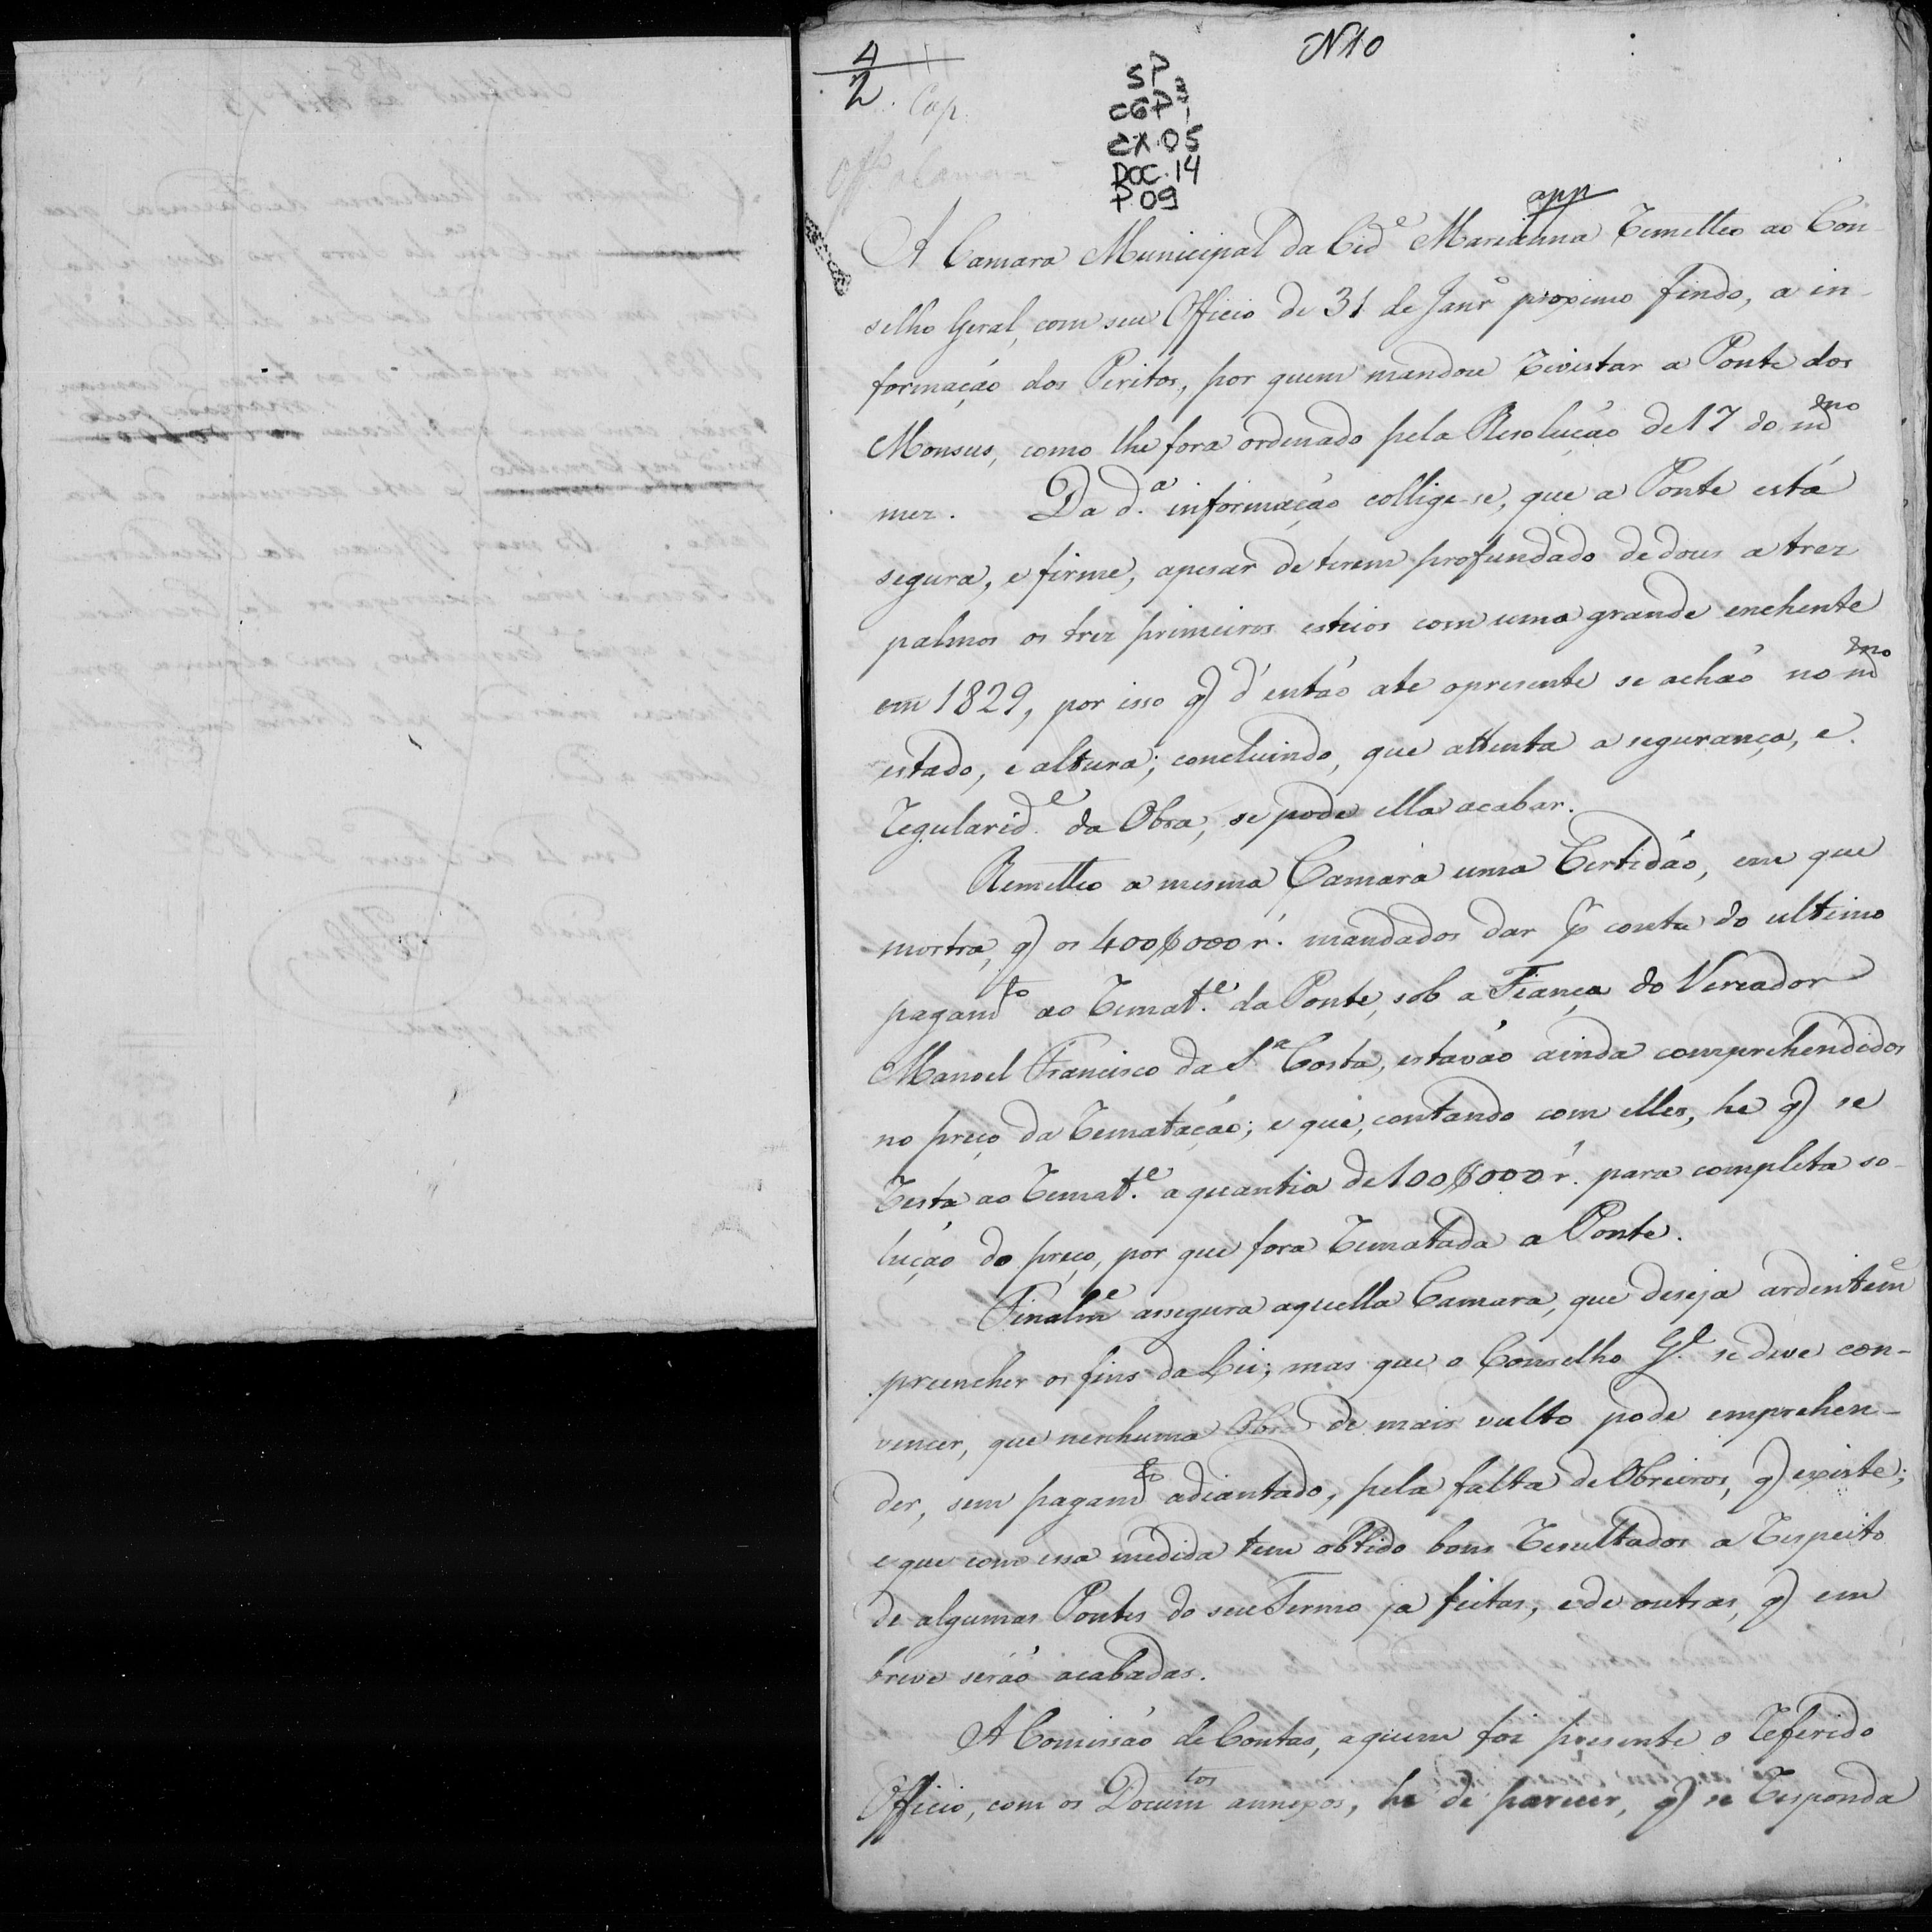 N10
4
2
Cap.
SP
CGP1
CX.05
DOC.14
P09
app
A Camara Municipal da Cid.e Marianna remetteo ao Con-
selho Geral, com seu Officio de 31 de Janr.o proximo findo, a in-
formação dos Peritos, por quem mandou revistar a Ponte dos
Monsus, como lhe fora ordenado pela Resolução de 17 do mmo
mez. Da d.a informação collige-se, que a Ponte está
segura, e firme, apesar de terem profundado de dous a trez
palmos os trez primeiros esteios com uma grande enchente
em 1829, por isso q d'então até o presente se achão no mmo
estado, e altura; concluindo, que attenta a segurança, e
regularid.e da Obra, se pode ella acabar.
Remetteo a mesma Camara uma Certidão, em que
mostra, q os 400$000 r. mandados dar p conta do ultimo
pagamto ao remat.e da Ponte, sob a Fiança do Vereador
Manoel Francisco da S.a Costa, estavão ainda comprehendidos
no preço da rematação; e que, contando com elles, he q se
resta ao remat.e a quantia de 100$000 r. para completa so-
lução do preço, por que fora rematada a Ponte.
Finalme assegura aquella Camara, que deseja ardenteme
preencher os fins da Lei; mas que o Conselho G.l se deve con-
vencer, que nenhuma Obra de mais vulto pode emprehen-
der, sem pagamto adiantado, pela falta de Obreiros, q existe;
e que com essa medida tem obtido bons resultados a respeito
de algumas Pontes do seu Termo ja feitas, e de outras, q em
breve serão acabadas.
A Comissão de Contas, a quem foi presente o referido
Officio, com os Documtos annexos, he de parecer, q se responda